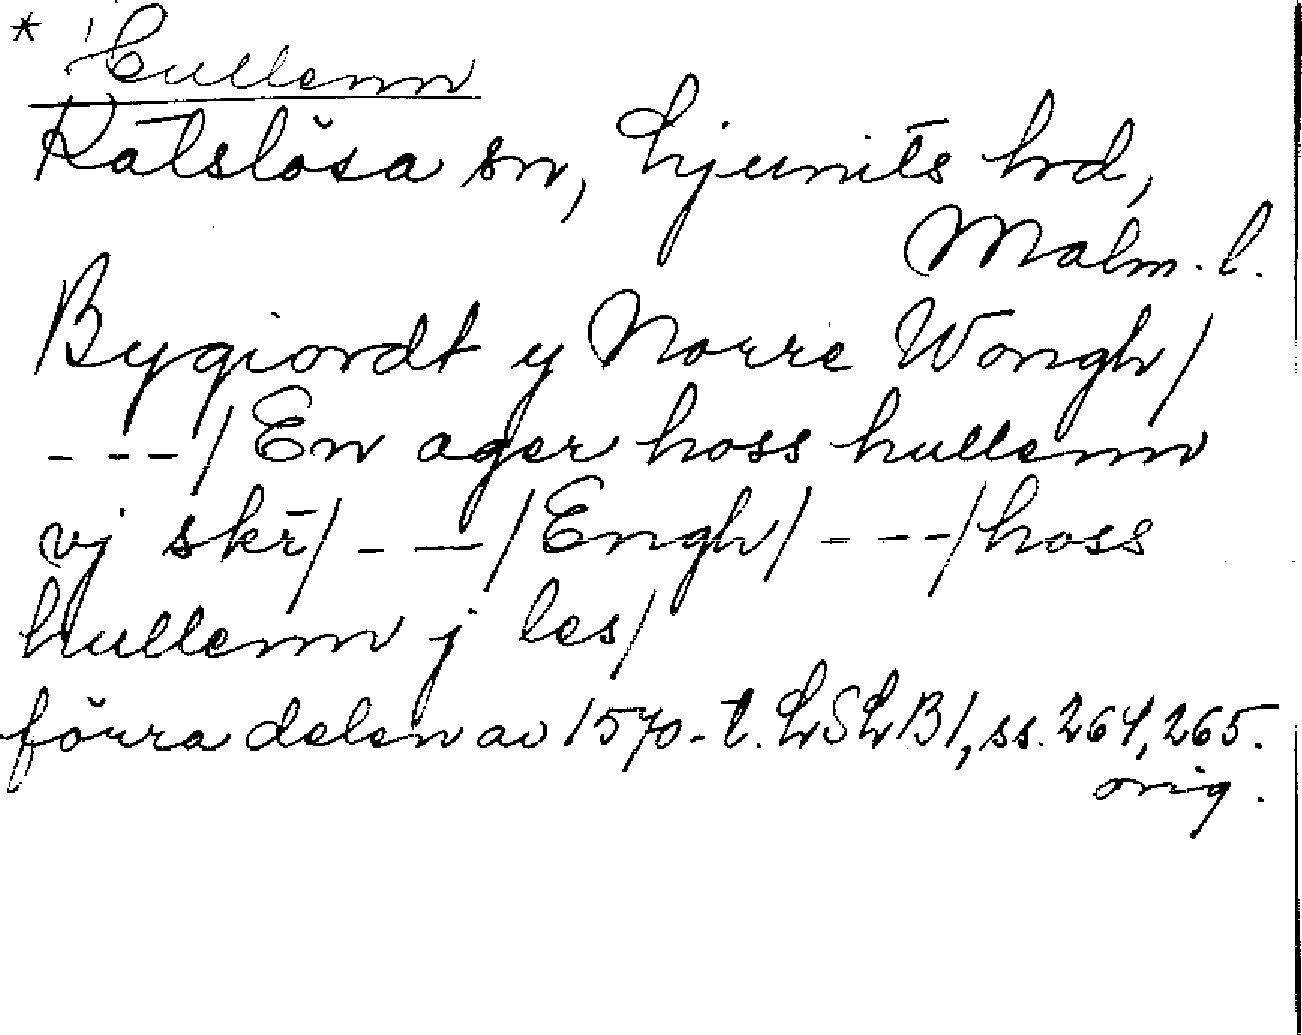 * Cullenn
Katslösa sn, Ljunits hd,
Malm. l.
Bygiordt y Norre Wongh/
- - - -/ En ager hoss hullenn
vj skr/ - - -/ Engh/ - - - -/ hoss
hullenn j les/
förra delen av 1570-t. LSLB1, ss. 264, 265.
orig.